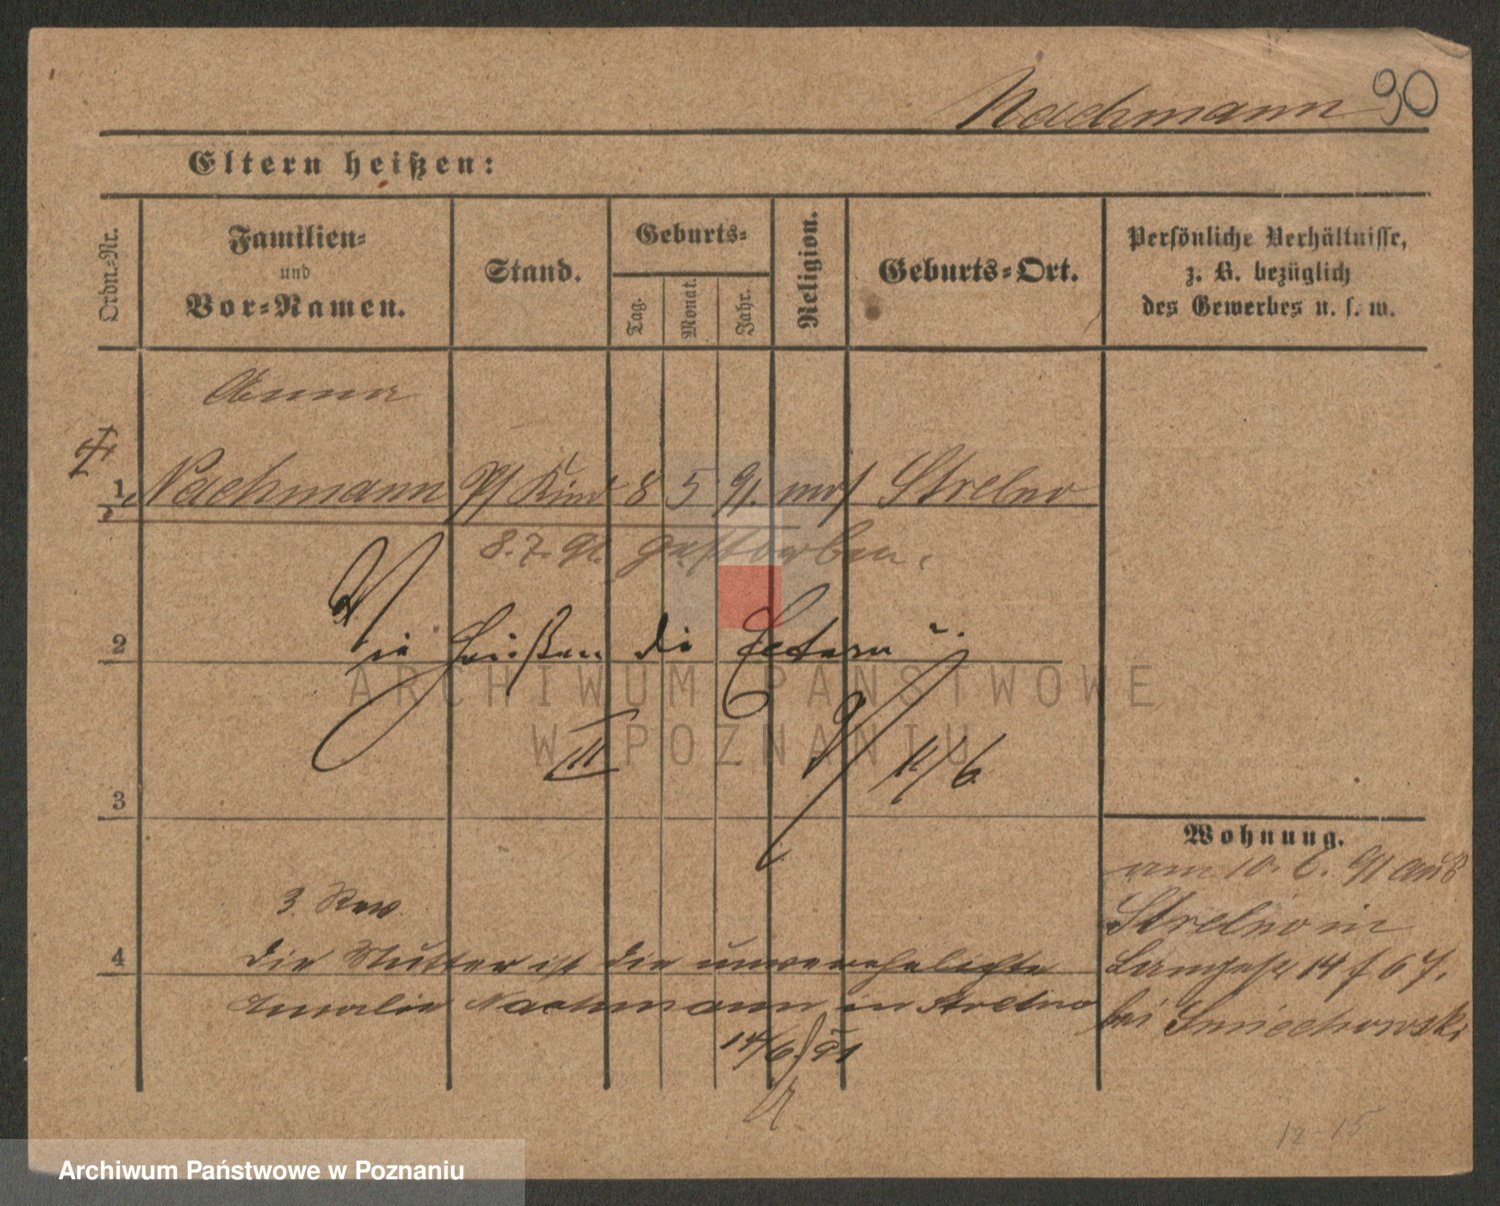 Nachmann 90
Eltern heißen:
Ordn.-Nr.
Familien-
und
Vor-Namen.
Stand.
Geburts-
Tag.
Monat.
Jahr.
Religion.
Geburts-Ort.
Persönliche Verhältnisse,
z. B. bezüglich
des Gewerbes u. s. w.
Anna
1 Nachmann Kind 8 5 91. mos Strelno
8. 7. 91 gestorben.
2 Wie heißen die Eltern?
III 11/6
3
Wohnung.
am 10. 6. 91 aus
Strelno in
3. Rev
4 die Mutter ist die unverehelichte
Langestr 14 67.
Amalie Nachmann in Strelno
bei Smiechowski
14/6 91
12-15
ARCHIWUM PAŃSTWOWE
W POZNANIU
Archiwum Państwowe w Poznaniu